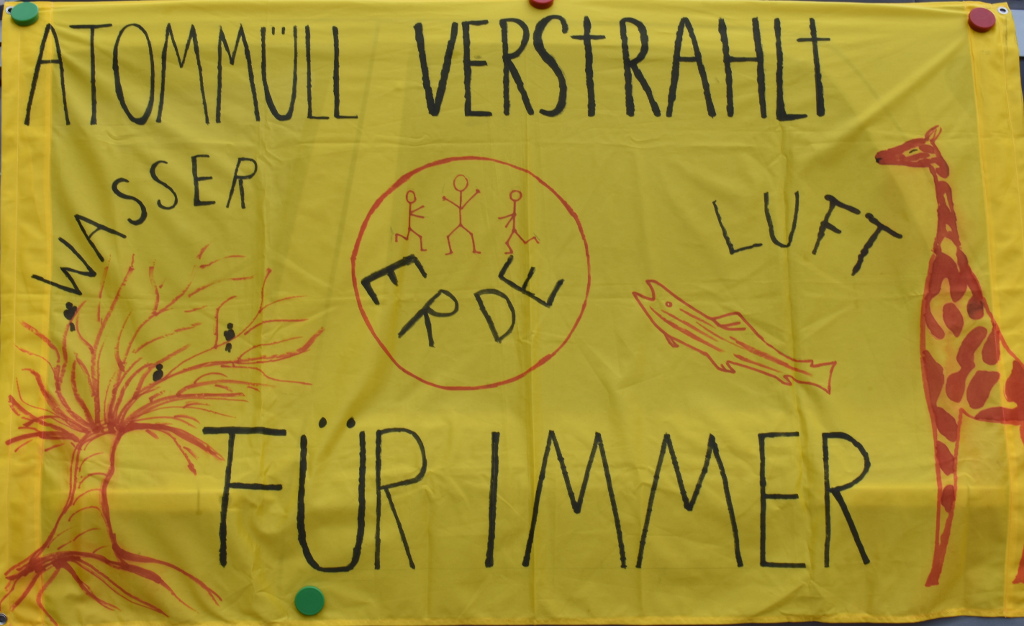 ATOMMÜLL VERSTRAHLT
WASSER
ERDE
LUFT
FÜR IMMER